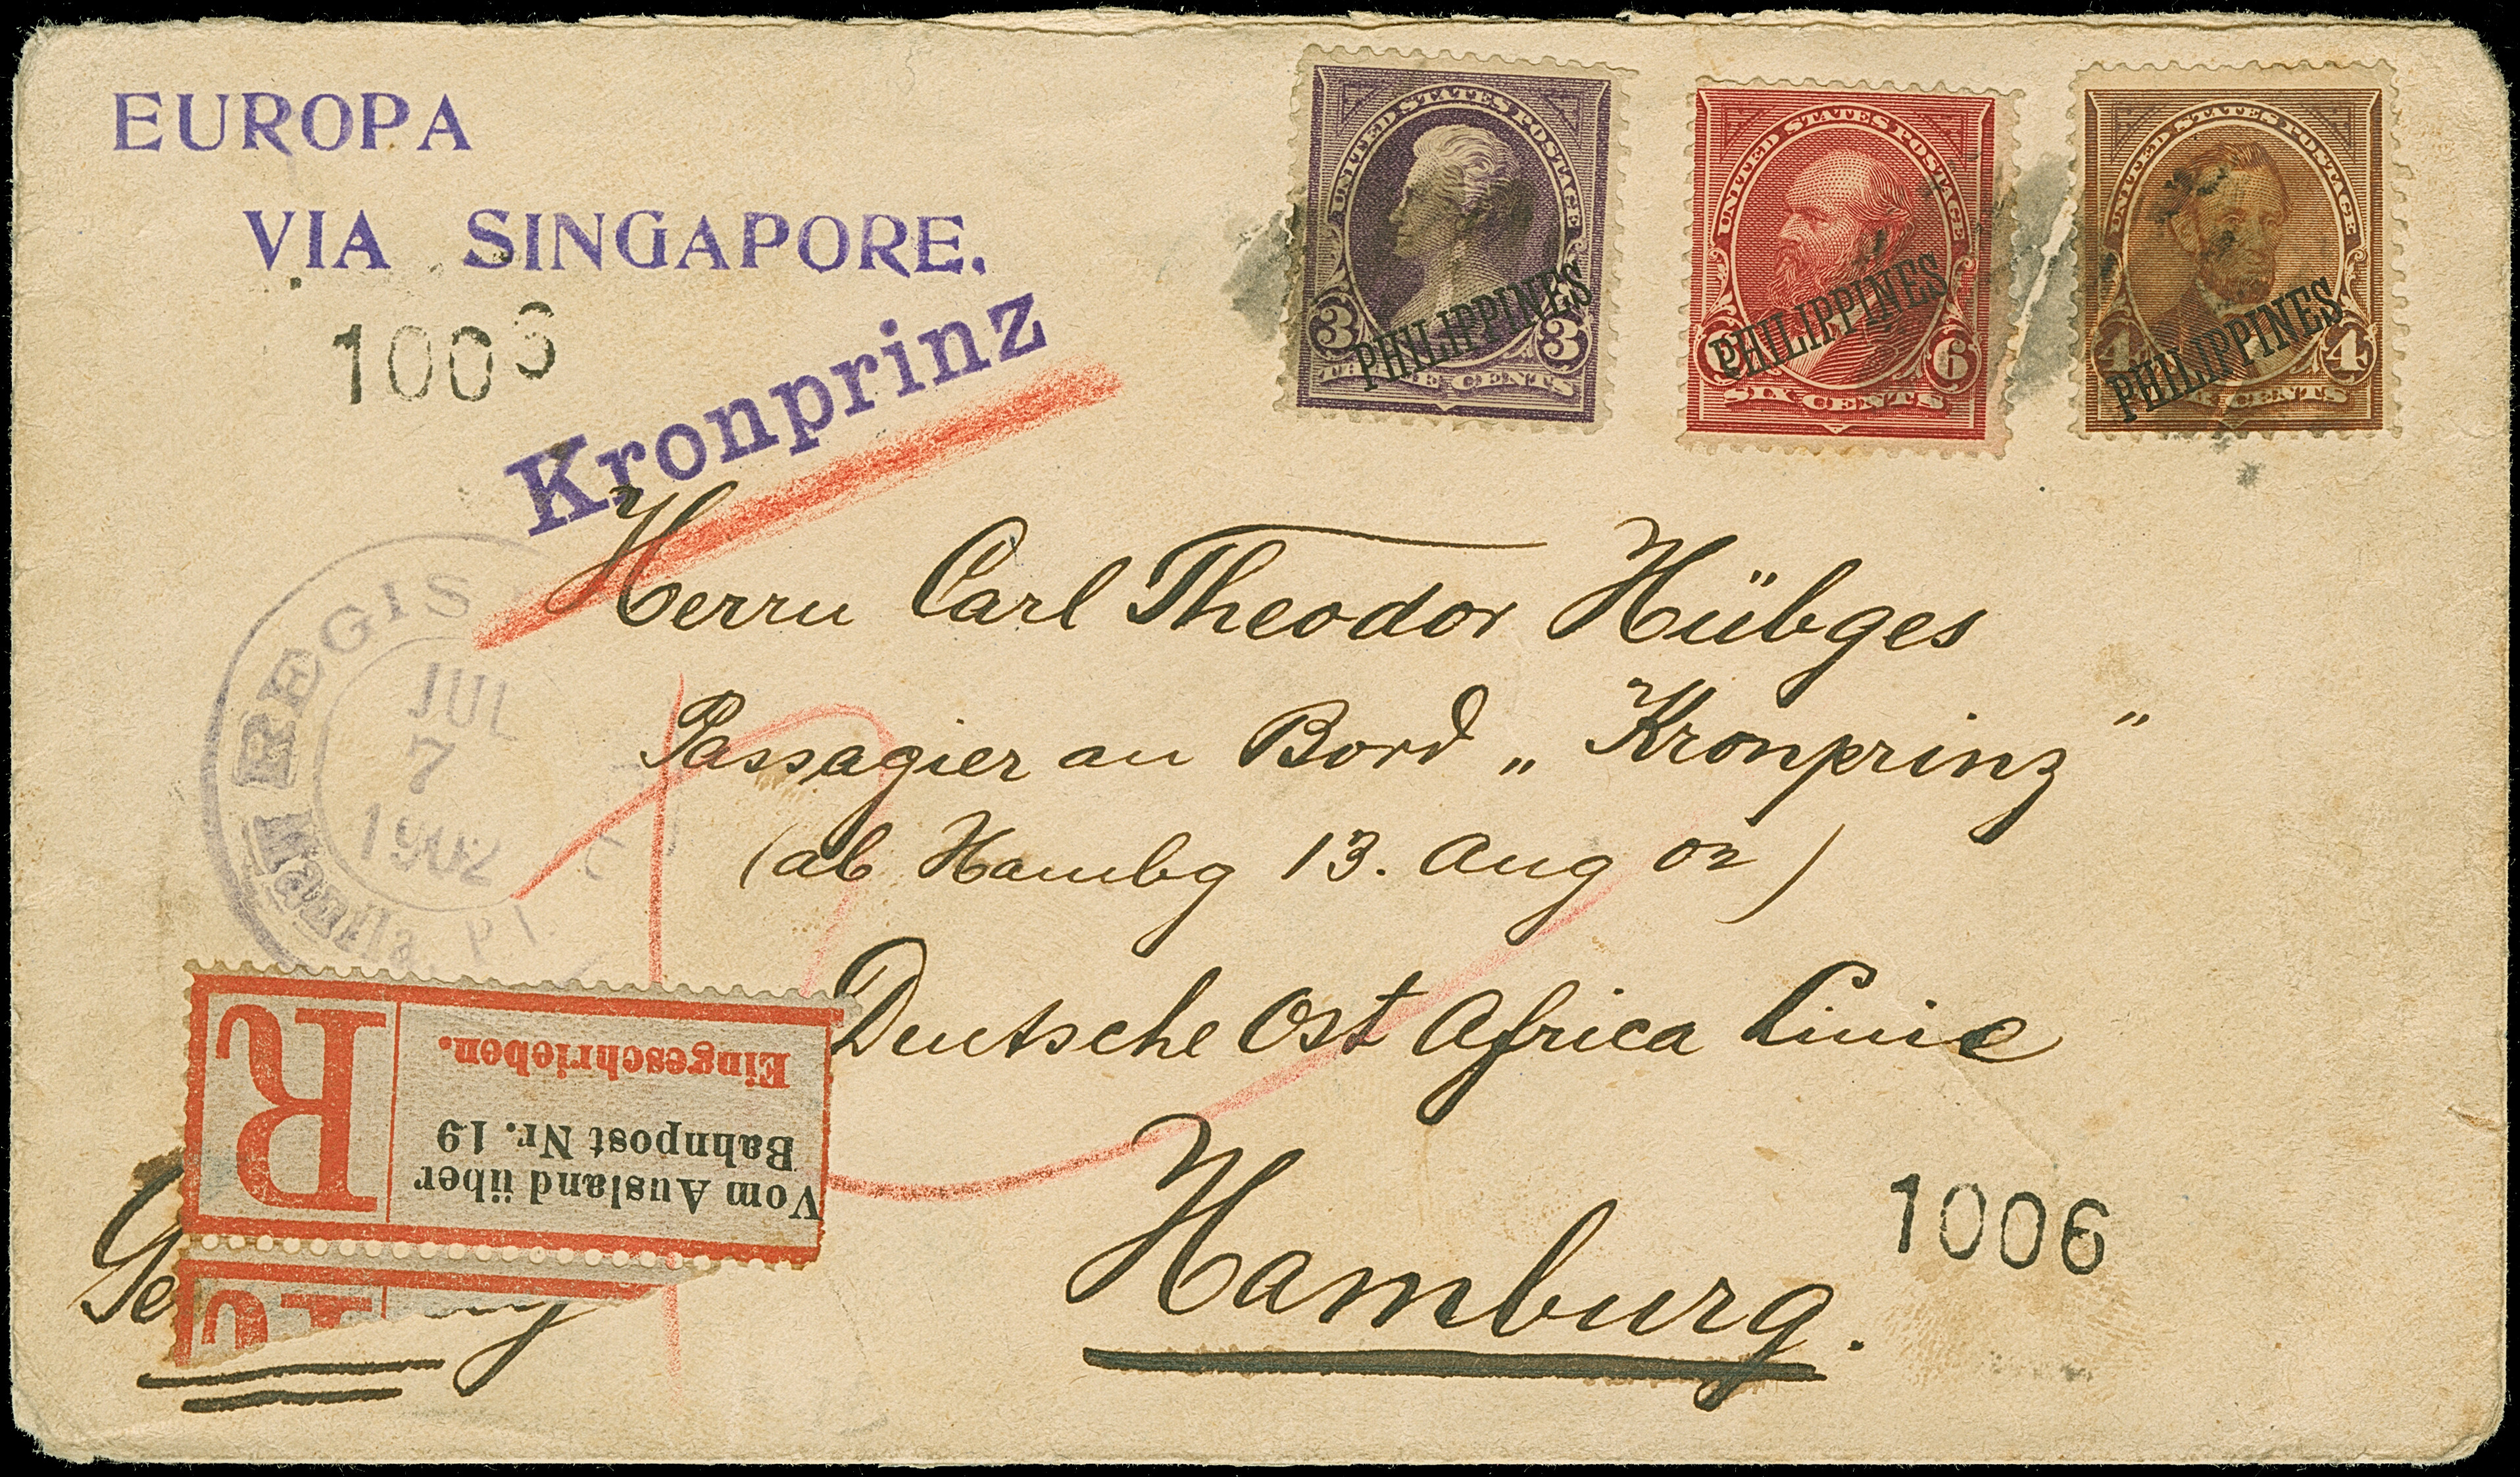 EUROPA
VIA SINGAPORE.
1006
Kronprinz
UNITED STATES POSTAGE
PHILIPPINES
3 3
THREE CENTS
UNITED STATES POSTAGE
PHILIPPINES
6
SIX CENTS
UNITED STATES POSTAGE
PHILIPPINES
4 4
CENTS
Herrn Carl Theodor Hübges
Passagier an Bord „Kronprinz”
(ab Hambg 13. Aug 02)
Deutsche Ost Africa Linie
Hamburg.
1006
REGIS
JUL
7
1902
Manila, P.I.
R
Eingeschrieben.
Vom Ausland über
Bahnpost Nr. 19